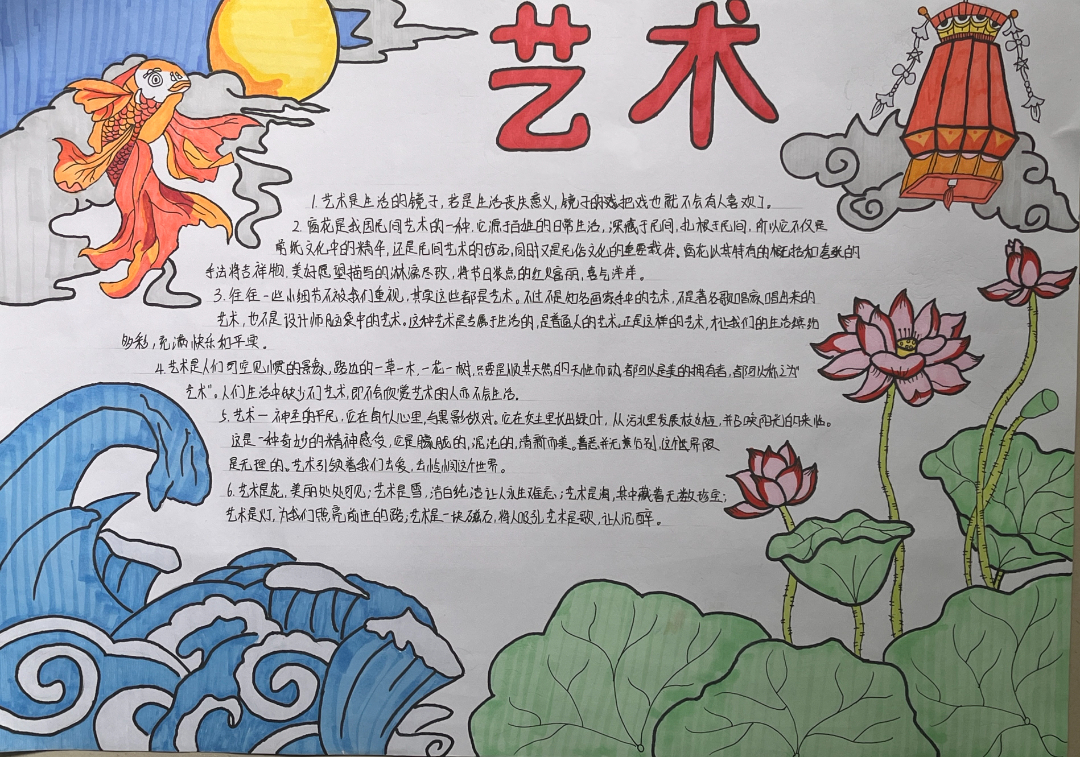 艺术
1.艺术是生活的镜子,若是生活丧失意义,镜子的戏把戏也就不会有人喜欢了。
2.窗花是我国民间艺术的一种,它源于百姓的日常生活,深藏于民间,扎根于民间,所以它不仅是
剪纸文化中的精华,还是民间艺术的饰品,同时又是民俗文化的重要载体。窗花以其特有的概括和夸张的
手法将吉祥物、美好愿望描写的淋漓尽致,将节日装点的红火富丽,喜气洋洋。
3.往往一些小细节不被我们重视,其实这些都是艺术。不过不是知名画家手中的艺术,不是著名歌唱家唱出来的
艺术,也不是设计师脑袋中的艺术。这种艺术是专属于生活的,是普通人的艺术。正是这样的艺术,才让我们的生活缤纷
多彩,充满快乐和平实。
4.艺术是人们司空见惯的景象,路边的一草一木,一花一树,只要是顺其天然的天性而动,都可以是美的拥有者,都可以称之为"
艺术"。人们生活中缺少不了艺术,即不会欣赏艺术的人亦不会生活。
5.艺术一神圣的字儿,它在每个人心里,与黑影敌对。它在灰土里长出绿叶,从污水里发展枝条,并召唤阳光的来临。
这是一种奇妙的精神感受,它是朦胧的,混沌的,清新而美。善恶并无善分别,这个世界很
是无理的。艺术引领着我们去爱,去恬润这个世界。
6.艺术是花,美丽处处可见;艺术是雪,洁白纯洁让人永生难忘;艺术是海,其中藏着无数珍宝;
艺术是灯,为我们照亮前进的路;艺术是一块磁石,将人吸引,艺术是歌,让人沉醉。